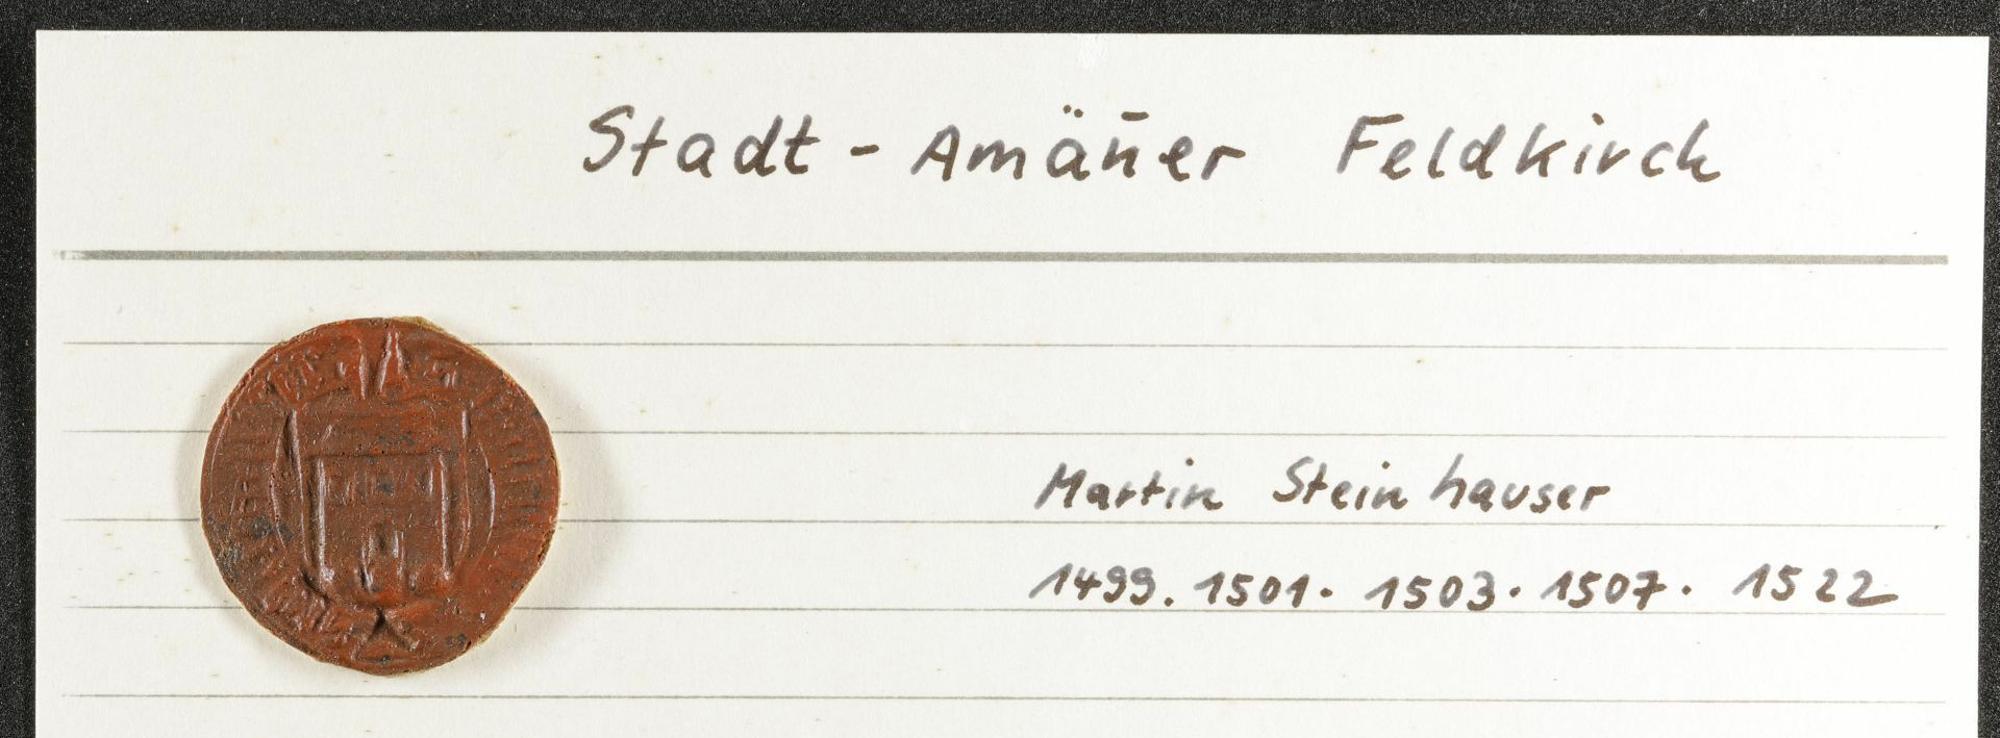 Stadt - Amän̄er Feldkirch
Martin Steinhauser
1499. 1501. 1503. 1507. 1522